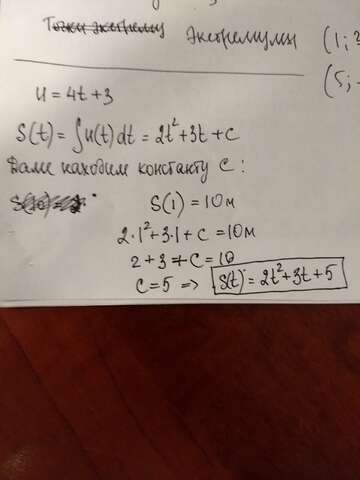 Точки экстремум Экстремумы (1; 2
(5; -
u = 4t + 3
S(t) = ∫u(t)dt = 2t² + 3t + c
Далее находим константу C:
S(1) = 10м
2·1² + 3·1 + c = 10м
2 + 3 + C = 10
C = 5 => S(t) = 2t² + 3t + 5